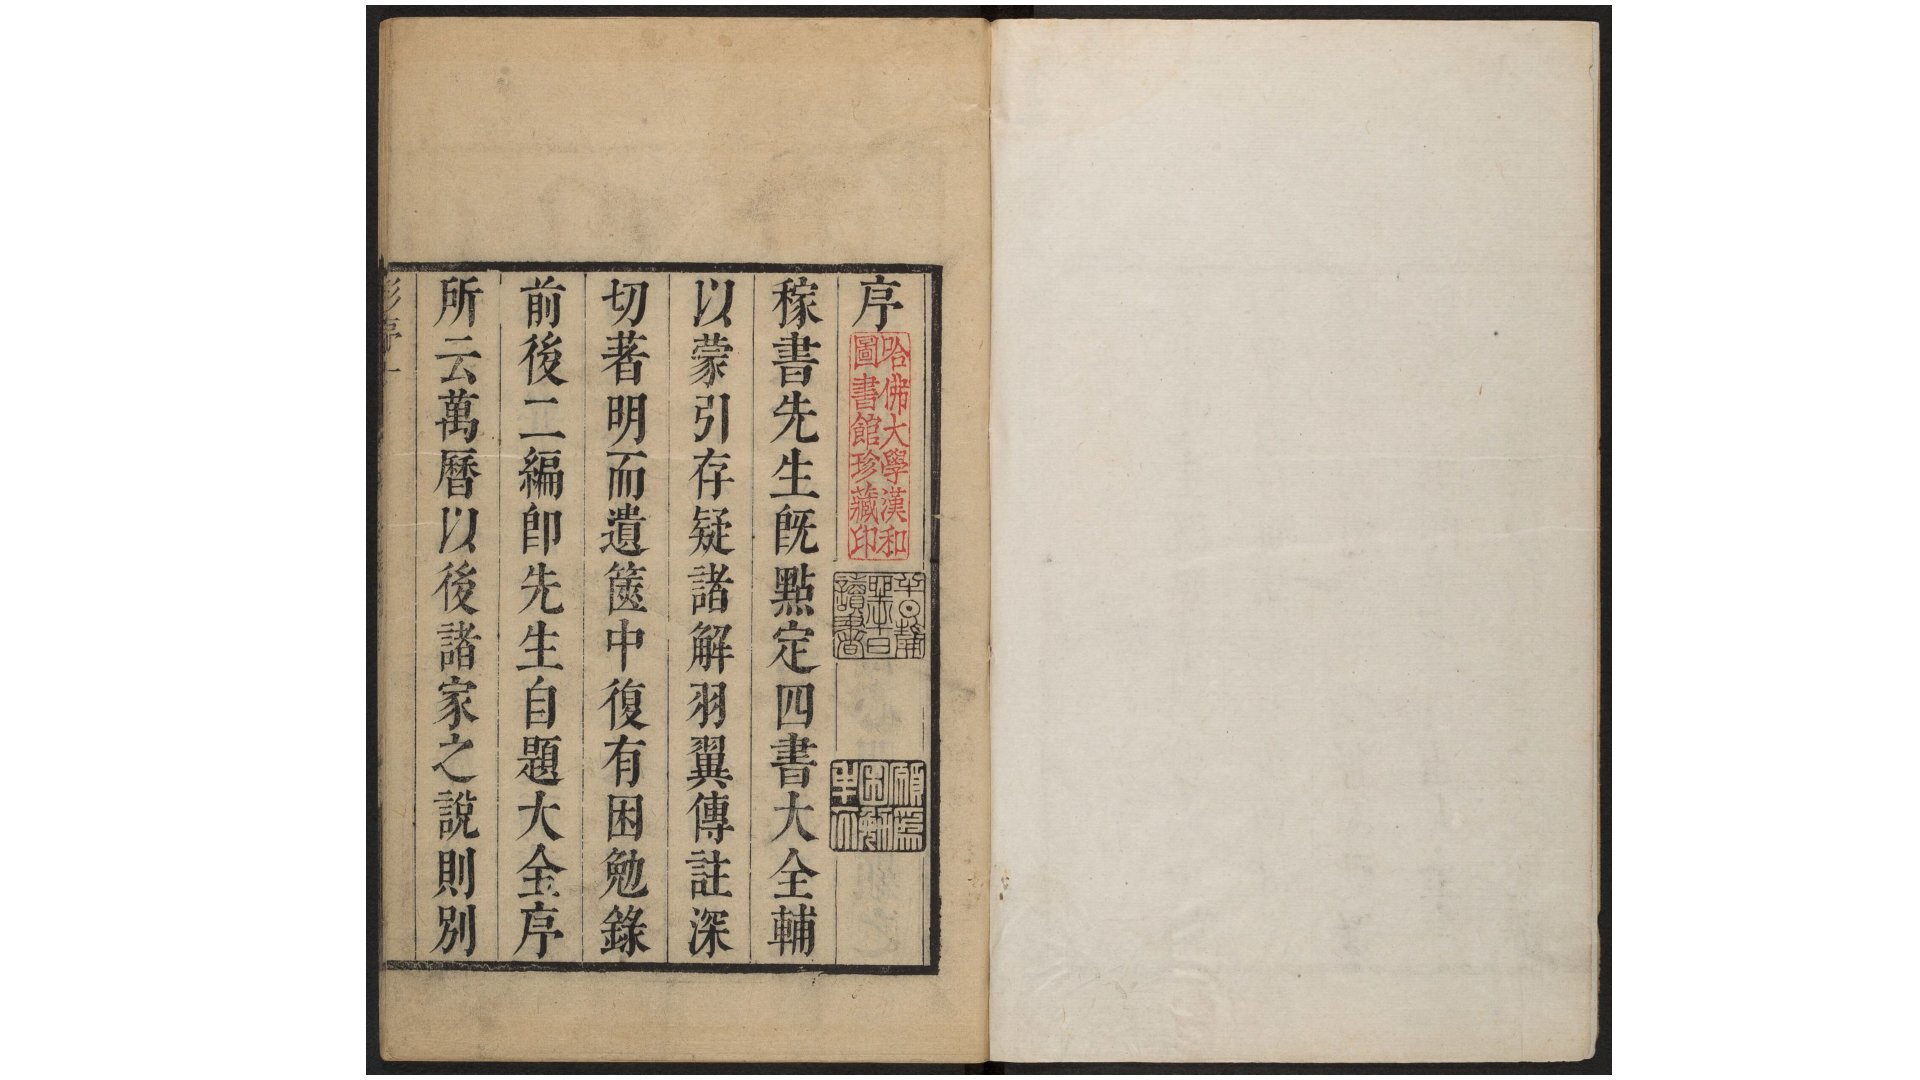 序
哈佛大學漢和
圖書館珍藏印
讀書
稼書先生旣點定四書大全輔
以蒙引存疑諸解羽翼傳註深
切著明而遺篋中復有困勉錄
前後二編卽先生自題大全序
所云萬曆以後諸家之說則別